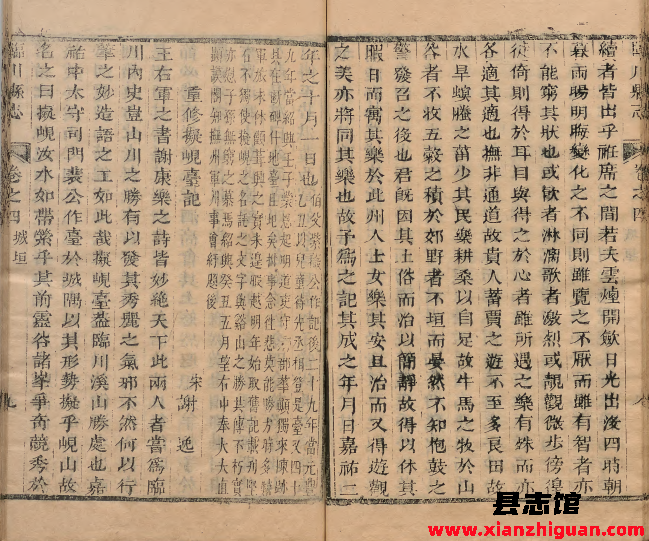 臨川縣志
卷之四
繪者皆出乎袵席之間若夫雲煙開斂日光出沒四時朝
暮雨暘明晦變化之不同則雖覽之不厭而雖有智者亦
不能窮其狀也或飲者淋漓歌者激烈或靚觀微步徬徨
徙倚則得於耳目與得之於心者雖所遇之樂有殊而亦
各適其適也撫非通道故貴人蓄賈之遊不至多良田故
水旱螟螣之菑少其民樂耕桑以自足故牛馬之牧於山
谷者不收五穀之積於郊野者不垣而晏然不知枹鼓之
警發召之役也君既因其土俗而治以簡靜故得以休其
暇日而寓其樂於此州人士女樂其安且治而又得遊觀
之美亦將同其樂也故予爲之記其成之年月日嘉祐二
年之十月一日也
重修擬峴臺記
宋 謝逸
王右軍之書謝康樂之詩皆妙絕天下此兩人者嘗爲臨
川內史豈山川之勝有以發其秀麗之氣邪不然何以行
筆之妙造語之工如此哉擬峴臺蓋臨川溪山勝處也嘉
祐中太守司門裴公作臺於城隅以其形勢擬乎峴山故
名之曰擬峴汝水如帶縈乎其前靈谷諸峯爭奇競秀於
臨川縣志
卷之四 城垣
九
县志馆
www.xianzhiguan.com